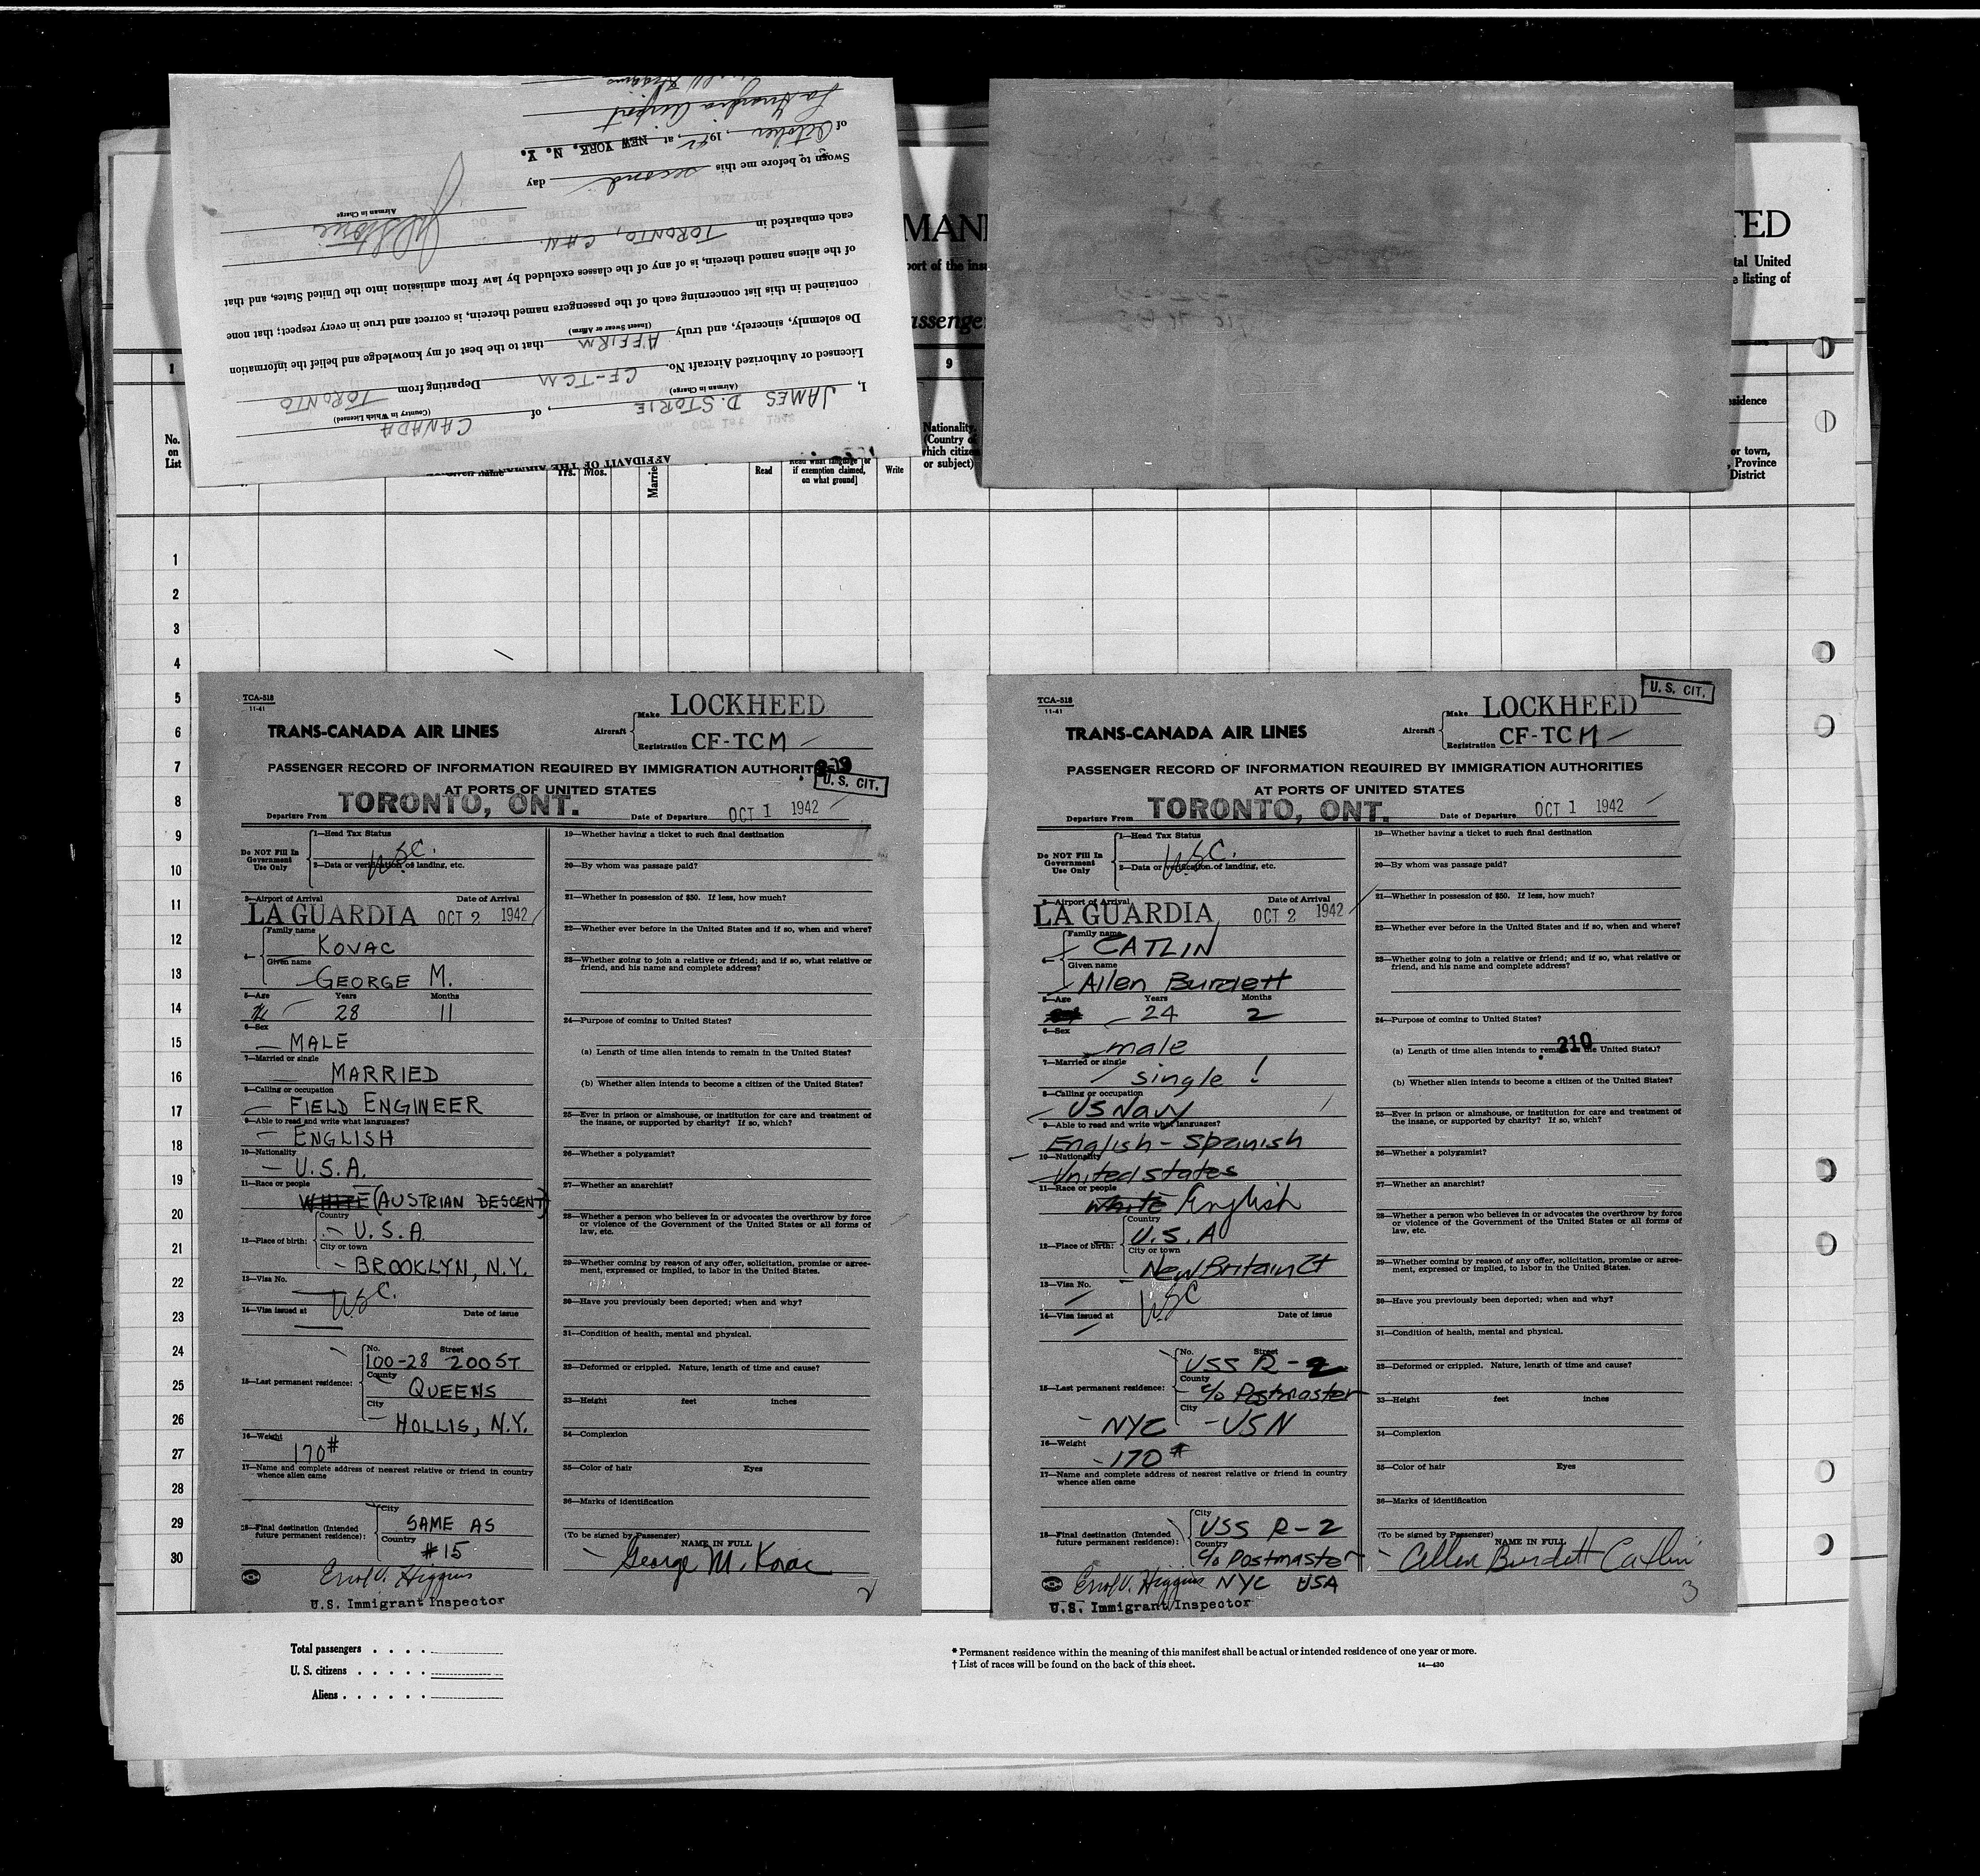 AFFIDAVIT OF THE AIRMAN
I, JAMES D. STORIE, of CANADA
(Airman in Charge) (Country in Which Licensed)
Licensed or Authorized Aircraft No. CF-TCM Departing from TORONTO
Do solemnly, sincerely, and truly AFFIRM that to the best of my knowledge and belief the information
(Insert Swear or Affirm)
contained in this list concerning each of the passengers named therein, is correct and true in every respect; that none
of the aliens named therein, is of any of the classes excluded by law from admission into the United States, and that
each embarked in TORONTO, CAN.
JDStorie
Airman in Charge
Sworn to before me this second day
of October, 1942, at NEW YORK, N. Y.
La Guardia Airport
MAN
TED
port of the ins
tal United
e listing of
assenge
1
9
No.
on
List
Yrs. Mos.
Married
Read
Read what language [or
if exemption claimed,
on what ground]
Write
Nationality.
(Country of
which citizen
or subject)
sidence
or town,
, Province
District
1
2
3
4
5
6
7
8
9
10
11
12
13
14
15
16
17
18
19
20
21
22
23
24
25
26
27
28
29
30
TCA-518
11-41
TRANS-CANADA AIR LINES
Aircraft
Make LOCKHEED
Registration CF-TCM
PASSENGER RECORD OF INFORMATION REQUIRED BY IMMIGRATION AUTHORIT
U.S. CIT.
AT PORTS OF UNITED STATES
Departure From TORONTO, ONT. Date of Departure OCT 1 1942
Do NOT Fill In
Government
Use Only
1—Head Tax Status
USC.
2—Data or verification of landing, etc.
3—Airport of Arrival Date of Arrival
LA GUARDIA OCT 2 1942
4—
Family name
KOVAC
Given name
GEORGE M.
5—Age Years Months
28 11
6—Sex
MALE
7—Married or single
MARRIED
8—Calling or occupation
FIELD ENGINEER
9—Able to read and write what languages?
ENGLISH
10—Nationality
U.S.A.
11—Race or people
WHITE (AUSTRIAN DESCENT)
12—Place of birth:
Country
U.S.A.
City or town
BROOKLYN, N.Y.
13—Visa No.
USC.
14—Visa issued at Date of issue
15—Last permanent residence:
No. Street
100-28 200 ST.
County
QUEENS
City
HOLLIS, N.Y.
16—Weight
170#
17—Name and complete address of nearest relative or friend in country
whence alien came
18—Final destination (Intended
future permanent residence):
City
SAME AS
Country
#15
Errol V. Higgins
U.S. Immigrant Inspector
19—Whether having a ticket to such final destination
20—By whom was passage paid?
21—Whether in possession of $50. If less, how much?
22—Whether ever before in the United States and if so, when and where?
23—Whether going to join a relative or friend; and if so, what relative or
friend, and his name and complete address?
24—Purpose of coming to United States?
(a) Length of time alien intends to remain in the United States?
(b) Whether alien intends to become a citizen of the United States?
25—Ever in prison or almshouse, or institution for care and treatment of
the insane, or supported by charity? If so, which?
26—Whether a polygamist?
27—Whether an anarchist?
28—Whether a person who believes in or advocates the overthrow by force
or violence of the Government of the United States or all forms of
law, etc.
29—Whether coming by reason of any offer, solicitation, promise or agree-
ment, expressed or implied, to labor in the United States.
30—Have you previously been deported; when and why?
31—Condition of health, mental and physical.
32—Deformed or crippled. Nature, length of time and cause?
33—Height feet inches
34—Complexion
35—Color of hair Eyes
36—Marks of identification
(To be signed by Passenger)
NAME IN FULL
George M. Kovac
2
TCA-518
11-41
TRANS-CANADA AIR LINES
Aircraft
Make LOCKHEED
U.S. CIT.
Registration CF-TCM
PASSENGER RECORD OF INFORMATION REQUIRED BY IMMIGRATION AUTHORITIES
AT PORTS OF UNITED STATES
Departure From TORONTO, ONT. Date of Departure OCT 1 1942
Do NOT Fill In
Government
Use Only
1—Head Tax Status
USC.
2—Data or verification of landing, etc.
3—Airport of Arrival Date of Arrival
LA GUARDIA OCT 2 1942
4—
Family name
CATLIN
Given name
Allen Burdett
5—Age Years Months
24 2
6—Sex
male
7—Married or single
single !
8—Calling or occupation
US Navy
9—Able to read and write what languages?
English - Spanish
10—Nationality
United states
11—Race or people
White English
12—Place of birth:
Country
U.S.A
City or town
New Britain Ct
13—Visa No.
USC
14—Visa issued at Date of issue
15—Last permanent residence:
No. Street
USS R-2
County
c/o Postmaster
City
NYC - USN
16—Weight
170#
17—Name and complete address of nearest relative or friend in country
whence alien came
18—Final destination (Intended
future permanent residence):
City
USS R-2
Country
c/o Postmaster
Errol V. Higgins NYC USA
U.S. Immigrant Inspector
19—Whether having a ticket to such final destination
20—By whom was passage paid?
21—Whether in possession of $50. If less, how much?
22—Whether ever before in the United States and if so, when and where?
23—Whether going to join a relative or friend; and if so, what relative or
friend, and his name and complete address?
24—Purpose of coming to United States?
210
(a) Length of time alien intends to remain in the United States?
(b) Whether alien intends to become a citizen of the United States?
25—Ever in prison or almshouse, or institution for care and treatment of
the insane, or supported by charity? If so, which?
26—Whether a polygamist?
27—Whether an anarchist?
28—Whether a person who believes in or advocates the overthrow by force
or violence of the Government of the United States or all forms of
law, etc.
29—Whether coming by reason of any offer, solicitation, promise or agree-
ment, expressed or implied, to labor in the United States.
30—Have you previously been deported; when and why?
31—Condition of health, mental and physical.
32—Deformed or crippled. Nature, length of time and cause?
33—Height feet inches
34—Complexion
35—Color of hair Eyes
36—Marks of identification
(To be signed by Passenger)
NAME IN FULL
Allen Burdett Catlin
3
Total passengers . . . .
U. S. citizens . . . . .
Aliens . . . . . .
* Permanent residence within the meaning of this manifest shall be actual or intended residence of one year or more.
† List of races will be found on the back of this sheet.
14—430